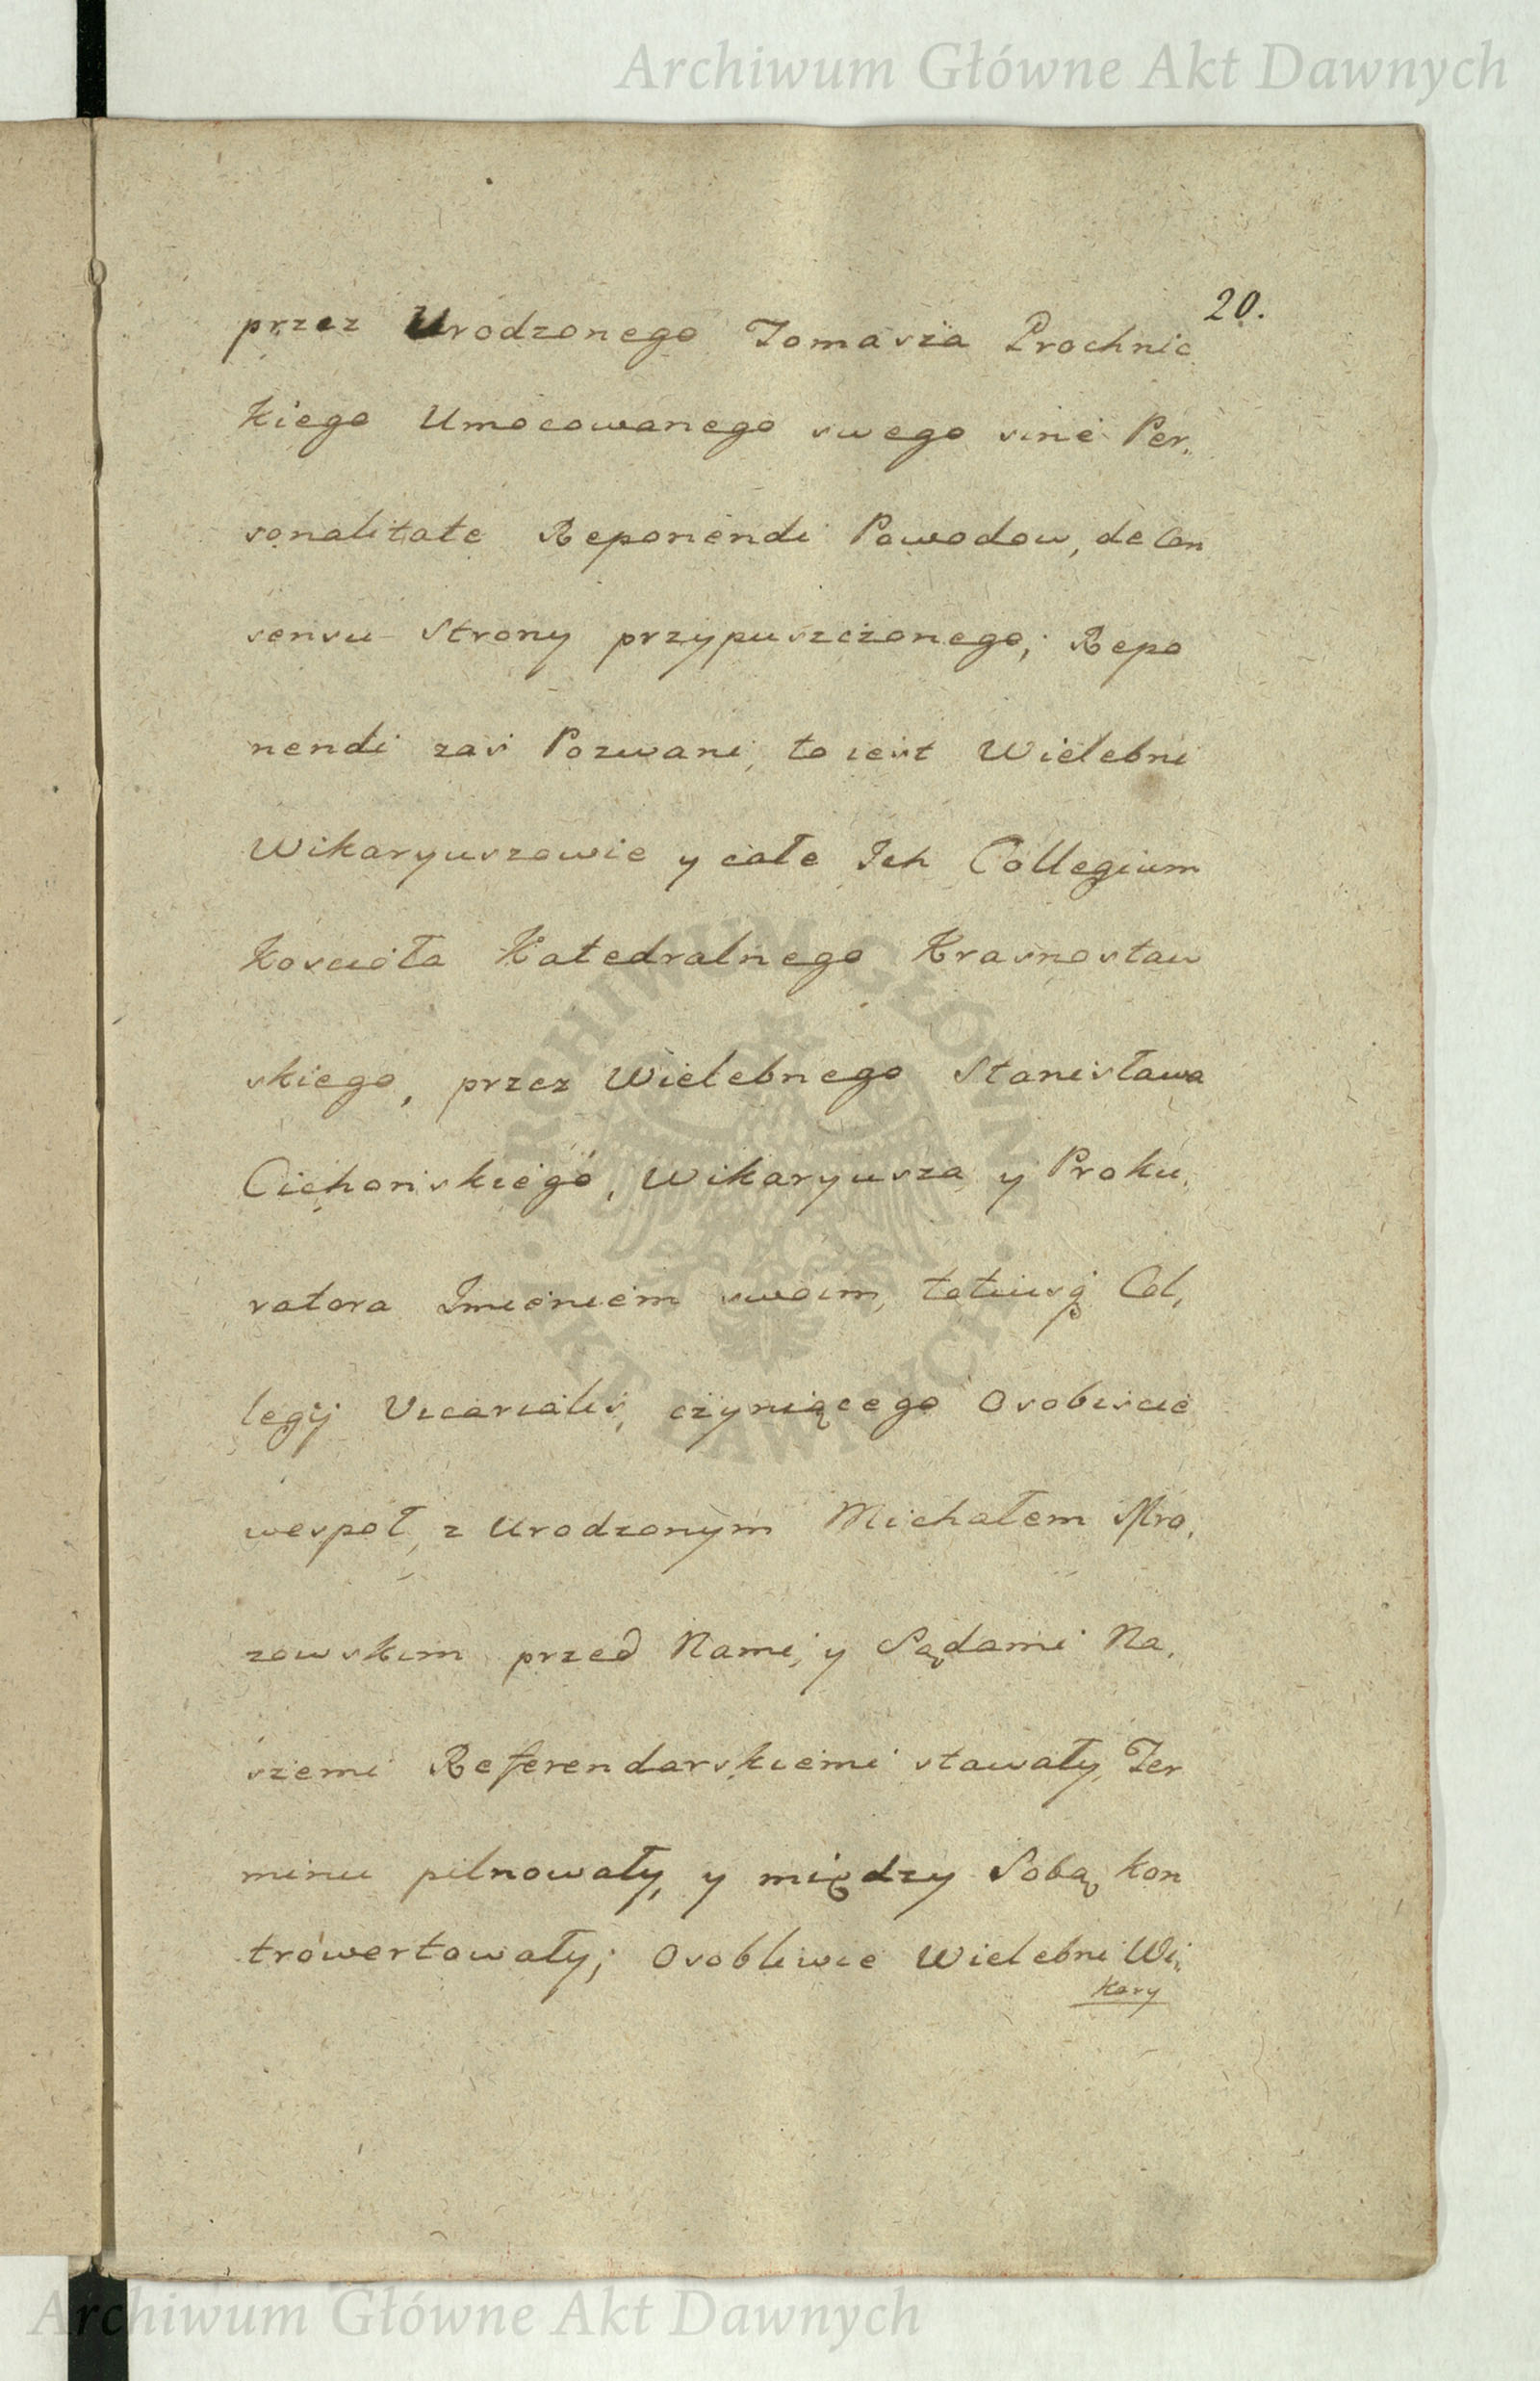 Archiwum Główne Akt Dawnych
20.
przez Urodzonego Tomasza Prochnic
kiego Umocowanego swego sine Per,,
sonalitate Reponendi Powodow, de Con
sensu Strony przypuszczonego; Repo
nendi zaś Pozwani, to iest Wielebni
Wikaryuszowie y całe Ich Collegium
Kościoła Katedralnego Krasnostaw
skiego, przez Wielebnego Stanisława
Cichońskiego, Wikaryusza y Proku,
ratora Imieniem swoim, totiusq Col,
legij Vicarialis, czyniącego Osobiscie
wespoł, z Urodzonym Michałem Mro,
zowskim przed Nami, y Sądami Na,
szemi Referendarskiemi stawały, Ter
minu pilnowały, y między Sobą kon
trowertowały; Osobliwie Wielebni Wi,,
kary
ARCHIWUM GŁÓWNE
AKT DAWNYCH
Archiwum Główne Akt Dawnych